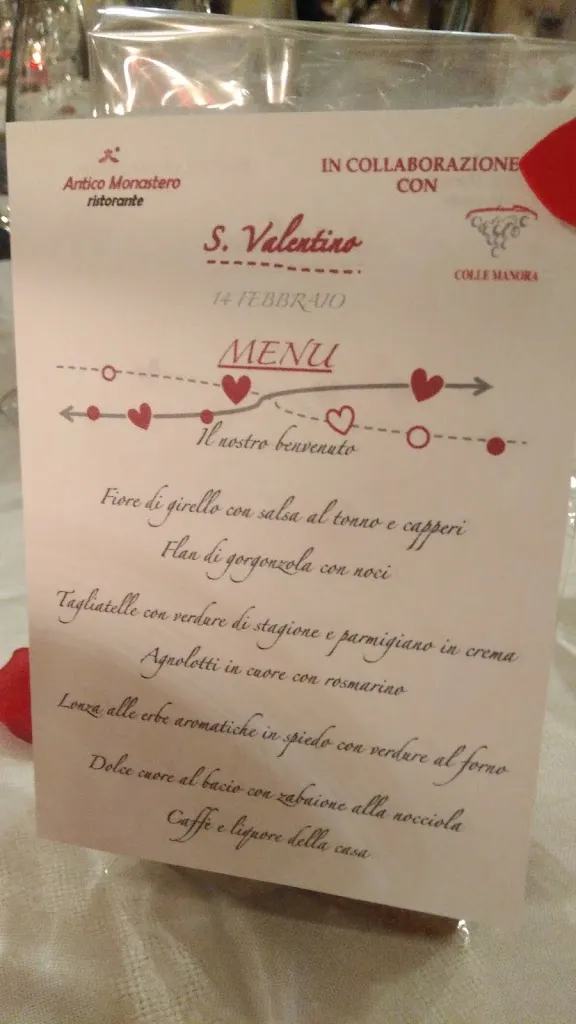 Antico Monastero
ristorante
IN COLLABORAZIONE
CON
COLLE MANORA
S. Valentino
14 FEBBRAIO
MENU
Il nostro benvenuto
Fiore di girello con salsa al tonno e capperi
Flan di gorgonzola con noci
Tagliatelle con verdure di stagione e parmigiano in crema
Agnolotti in cuore con rosmarino
Lonza alle erbe aromatiche in spiedo con verdure al forno
Dolce cuore al bacio con zabaione alla nocciola
Caffè e liquore della casa